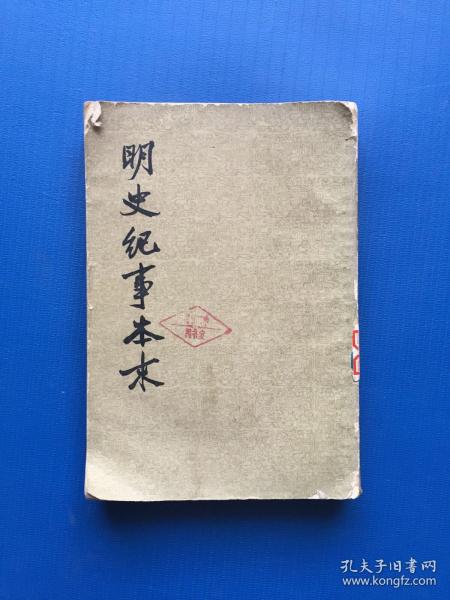 明史纪事本末
图书室
孔夫子旧书网
www.kongfz.com